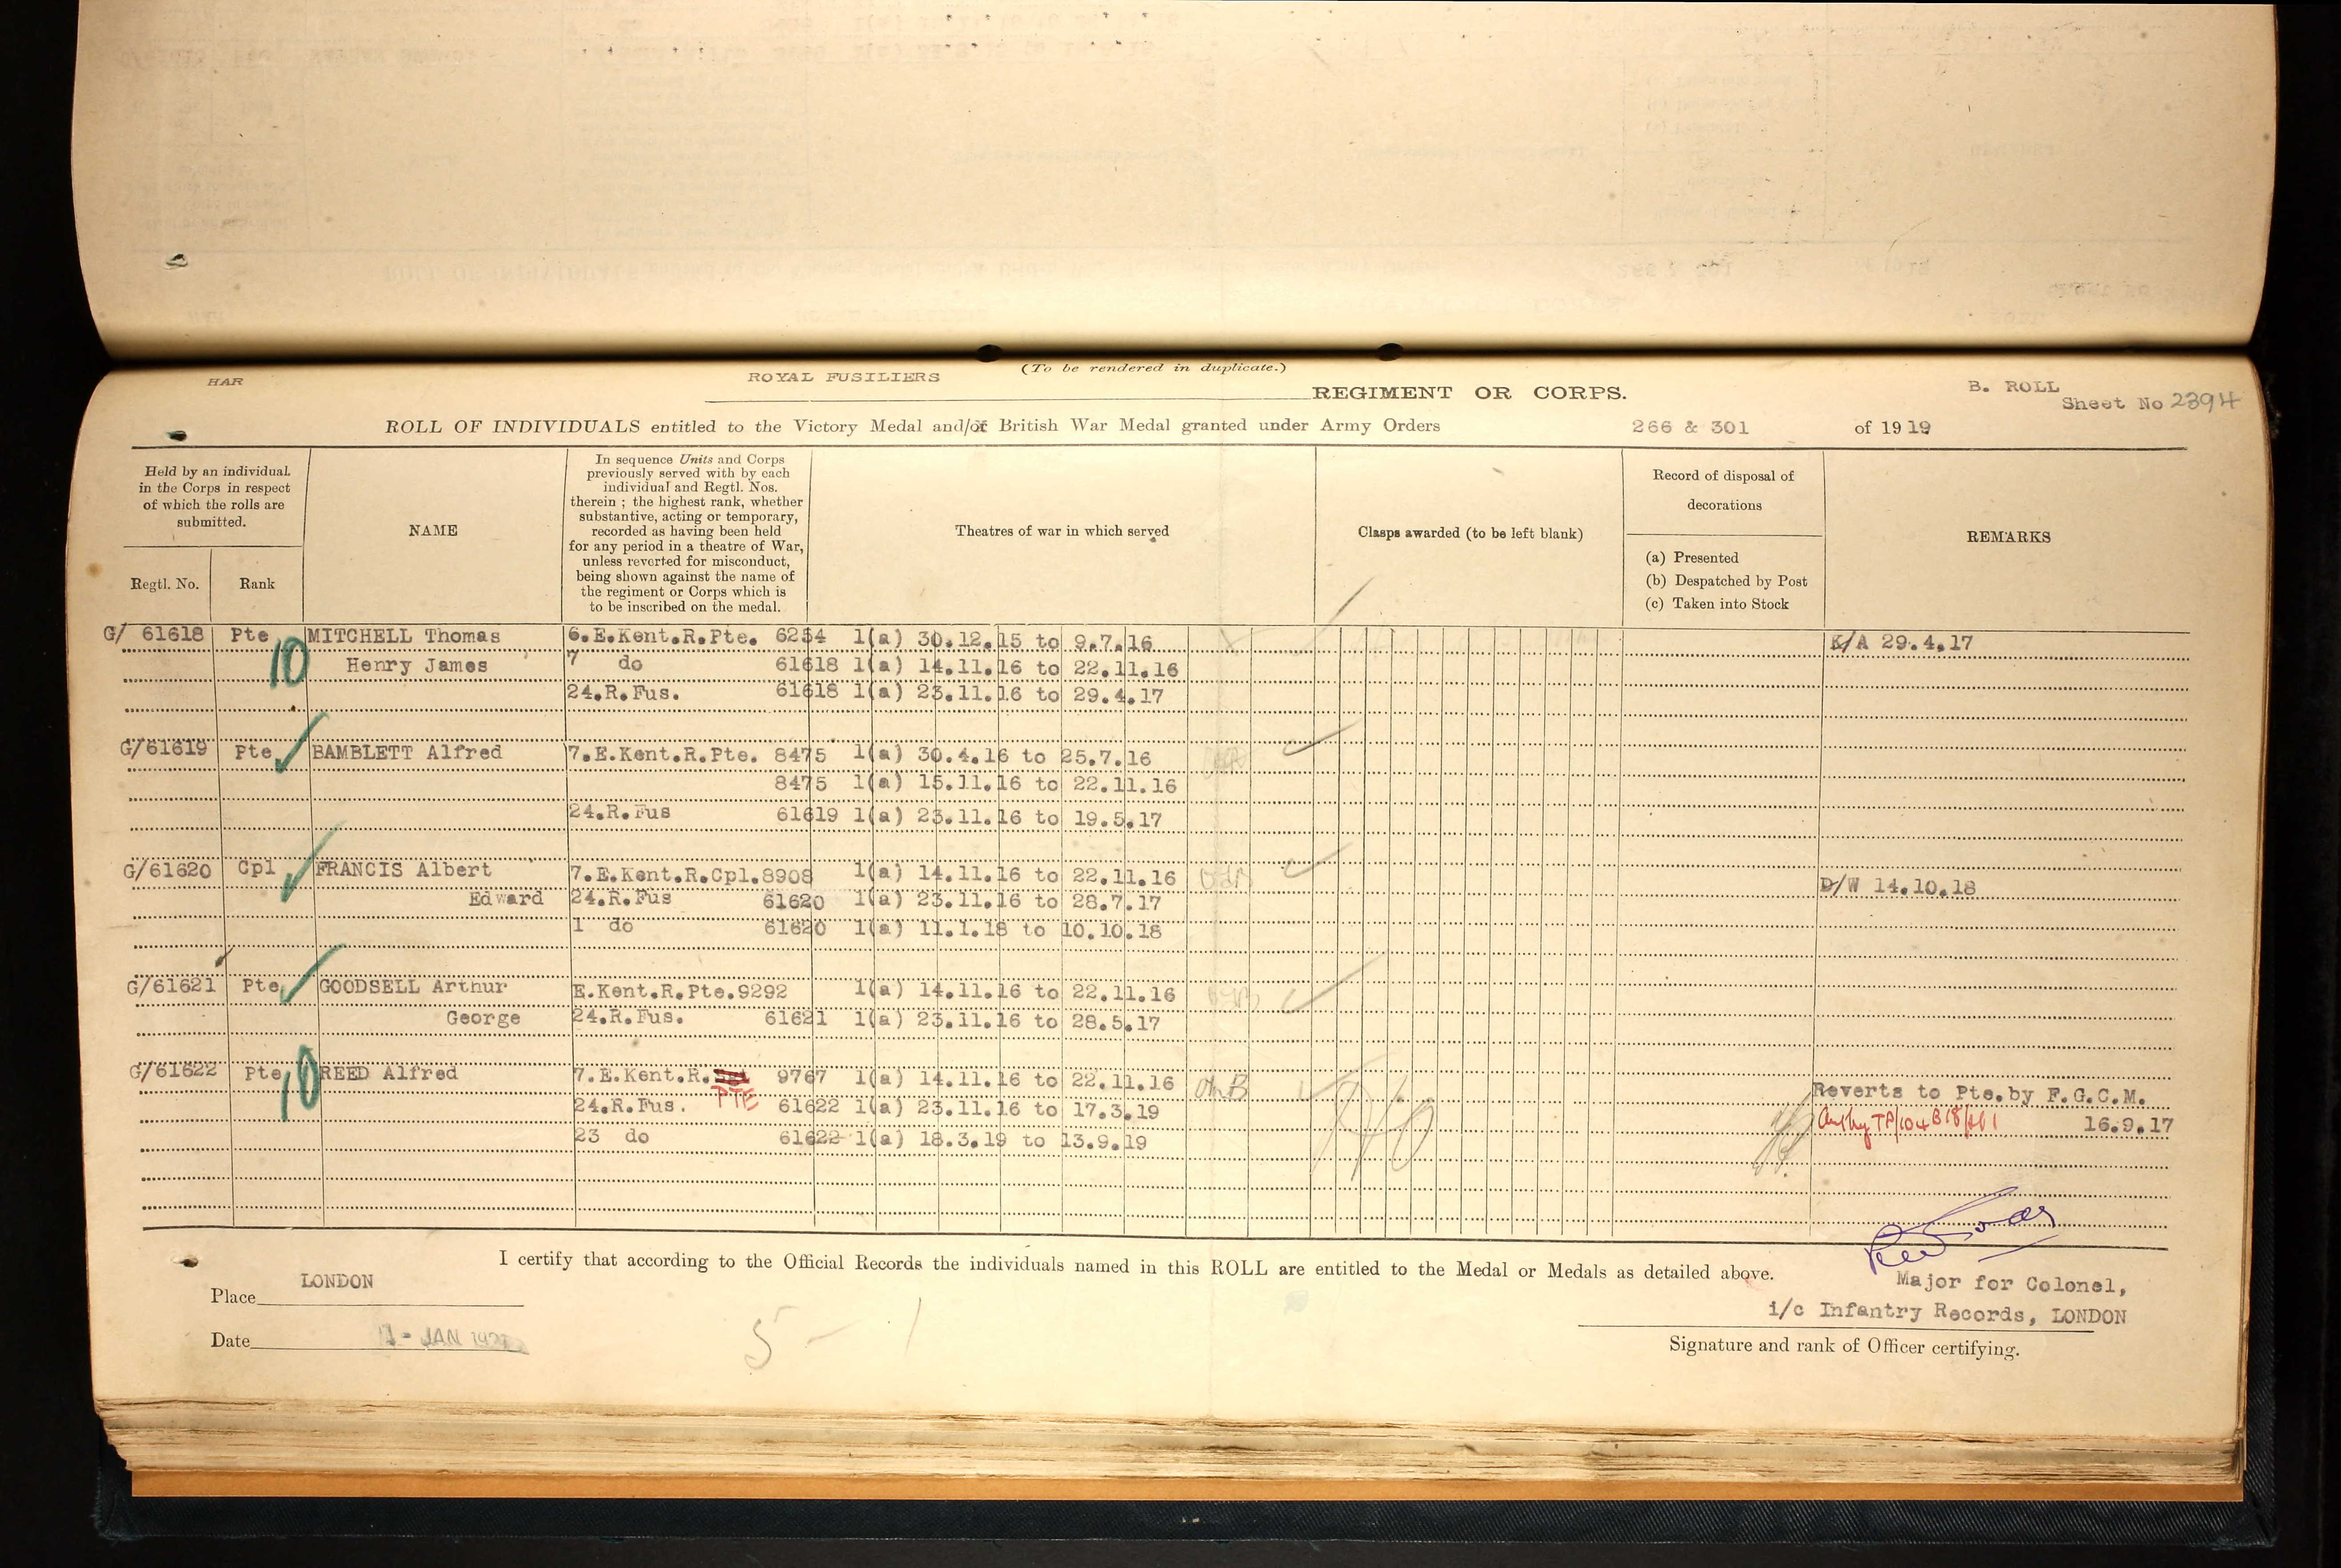 (To be rendered in duplicate.)
HAR
ROYAL FUSILIERS
REGIMENT OR CORPS.
B. ROLL
Sheet No 2394
ROLL OF INDIVIDUALS entitled to the Victory Medal and/or British War Medal granted under Army Orders 266 & 301 of 1919
Held by an individual
in the Corps in respect
of which the rolls are
submitted.
Regtl. No.
Rank
NAME
In sequence Units and Corps
previously served with by each
individual and Regtl. Nos.
therein ; the highest rank, whether
substantive, acting or temporary,
recorded as having been held
for any period in a theatre of War,
unless reverted for misconduct,
being shown against the name of
the regiment or Corps which is
to be inscribed on the medal.
Theatres of war in which served
Clasps awarded (to be left blank)
Record of disposal of
decorations
(a) Presented
(b) Despatched by Post
(c) Taken into Stock
REMARKS
G/ 61618 Pte 10 MITCHELL Thomas 6.E.Kent.R.Pte. 6234 1(a) 30.12.15 to 9.7.16 K/A 29.4.17
Henry James 7 do 61618 1(a) 14.11.16 to 22.11.16
24.R.Fus. 61618 1(a) 23.11.16 to 29.4.17
G/61619 Pte BAMBLETT Alfred 7.E.Kent.R.Pte. 8475 1(a) 30.4.16 to 25.7.16
8475 1(a) 15.11.16 to 22.11.16
24.R.Fus 61619 1(a) 23.11.16 to 19.5.17
G/61620 Cpl FRANCIS Albert 7.E.Kent.R.Cpl.8908 1(a) 14.11.16 to 22.11.16 D/W 14.10.18
Edward 24.R.Fus 61620 1(a) 23.11.16 to 28.7.17
1 do 61620 1(a) 11.1.18 to 10.10.18
G/61621 Pte GOODSELL Arthur E.Kent.R.Pte.9292 1(a) 14.11.16 to 22.11.16
George 24.R.Fus. 61621 1(a) 23.11.16 to 28.5.17
G/61622 Pte 10 REED Alfred 7.E.Kent.R. 9767 1(a) 14.11.16 to 22.11.16 Reverts to Pte.by F.G.C.M.
24.R.Fus. PTE 61622 1(a) 23.11.16 to 17.3.19 16.9.17
23 do 61622 1(a) 18.3.19 to 13.9.19
I certify that according to the Official Records the individuals named in this ROLL are entitled to the Medal or Medals as detailed above.
Place LONDON
Major for Colonel,
i/c Infantry Records, LONDON
Date JAN
5 - 1
Signature and rank of Officer certifying.